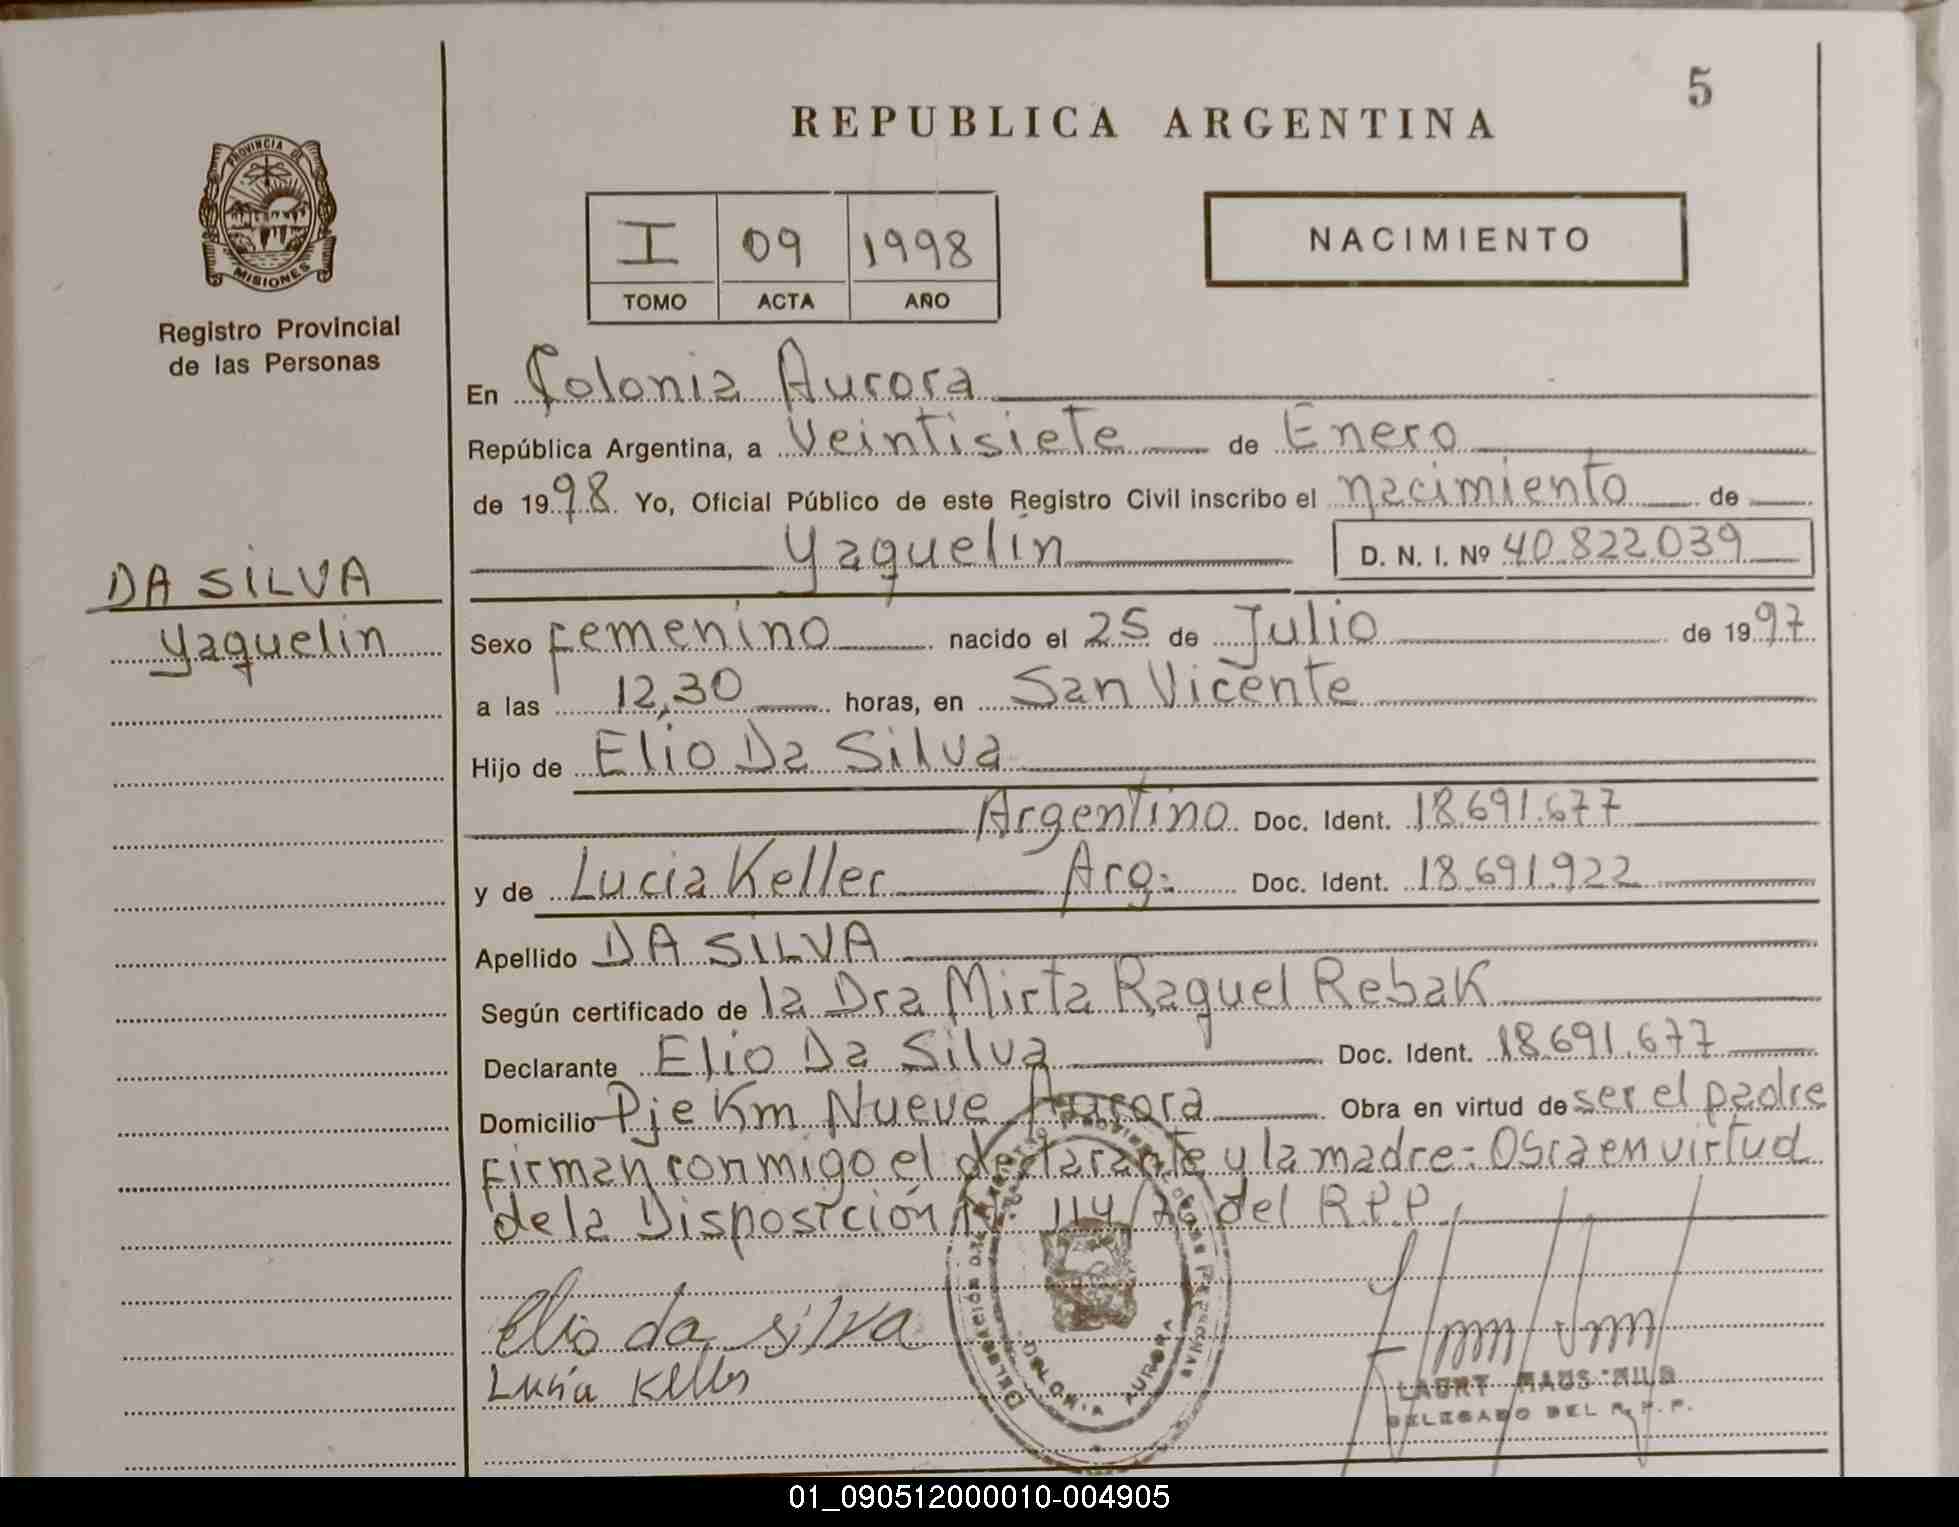 5
REPUBLICA ARGENTINA
PROVINCIA DE
MISIONES
Registro Provincial
de las Personas
I 09 1998
TOMO ACTA AÑO
NACIMIENTO
En Colonia Aurora
República Argentina, a Veintisiete de Enero
de 1998 Yo, Oficial Público de este Registro Civil inscribo el nacimiento de
Yaquelin D. N. I. Nº 40.822.039
DA SILVA
Yaquelin
Sexo femenino nacido el 25 de Julio de 1997
a las 12,30 horas, en San Vicente
Hijo de Elio Da Silva
Argentino Doc. Ident. 18.691.677
y de Lucia Keller Arg. Doc. Ident. 18.691.922
Apellido DA SILVA
Según certificado de la Dra Mirta Raquel Rebak
Declarante Elio Da Silva Doc. Ident. 18.691.677
Domicilio Pje Km Nueve Aurora Obra en virtud de ser el padre
firman conmigo el declarante y la madre - Obra en virtud
de la Disposición Nº 114/76 del R.P.P.
Elio da silva
Lucia Keller
COLONIA AURORA
DELEGADO DEL R. P. P.
01_090512000010-004905